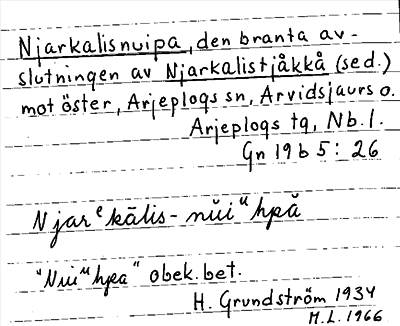 Njarkalisnuipa, den branta av-
slutningen av Njarkalistjåkkå (sed.)
mot öster, Arjeplogs sn, Arvidsjaurs o.
Arjeplogs tg, Nb.l.
Gn 19 b 5: 26
Njarᵉkālis-nŭiᵘhpă
"Nuiᵘhpa" obek. bet.
H. Grundström 1934
M.L. 1966